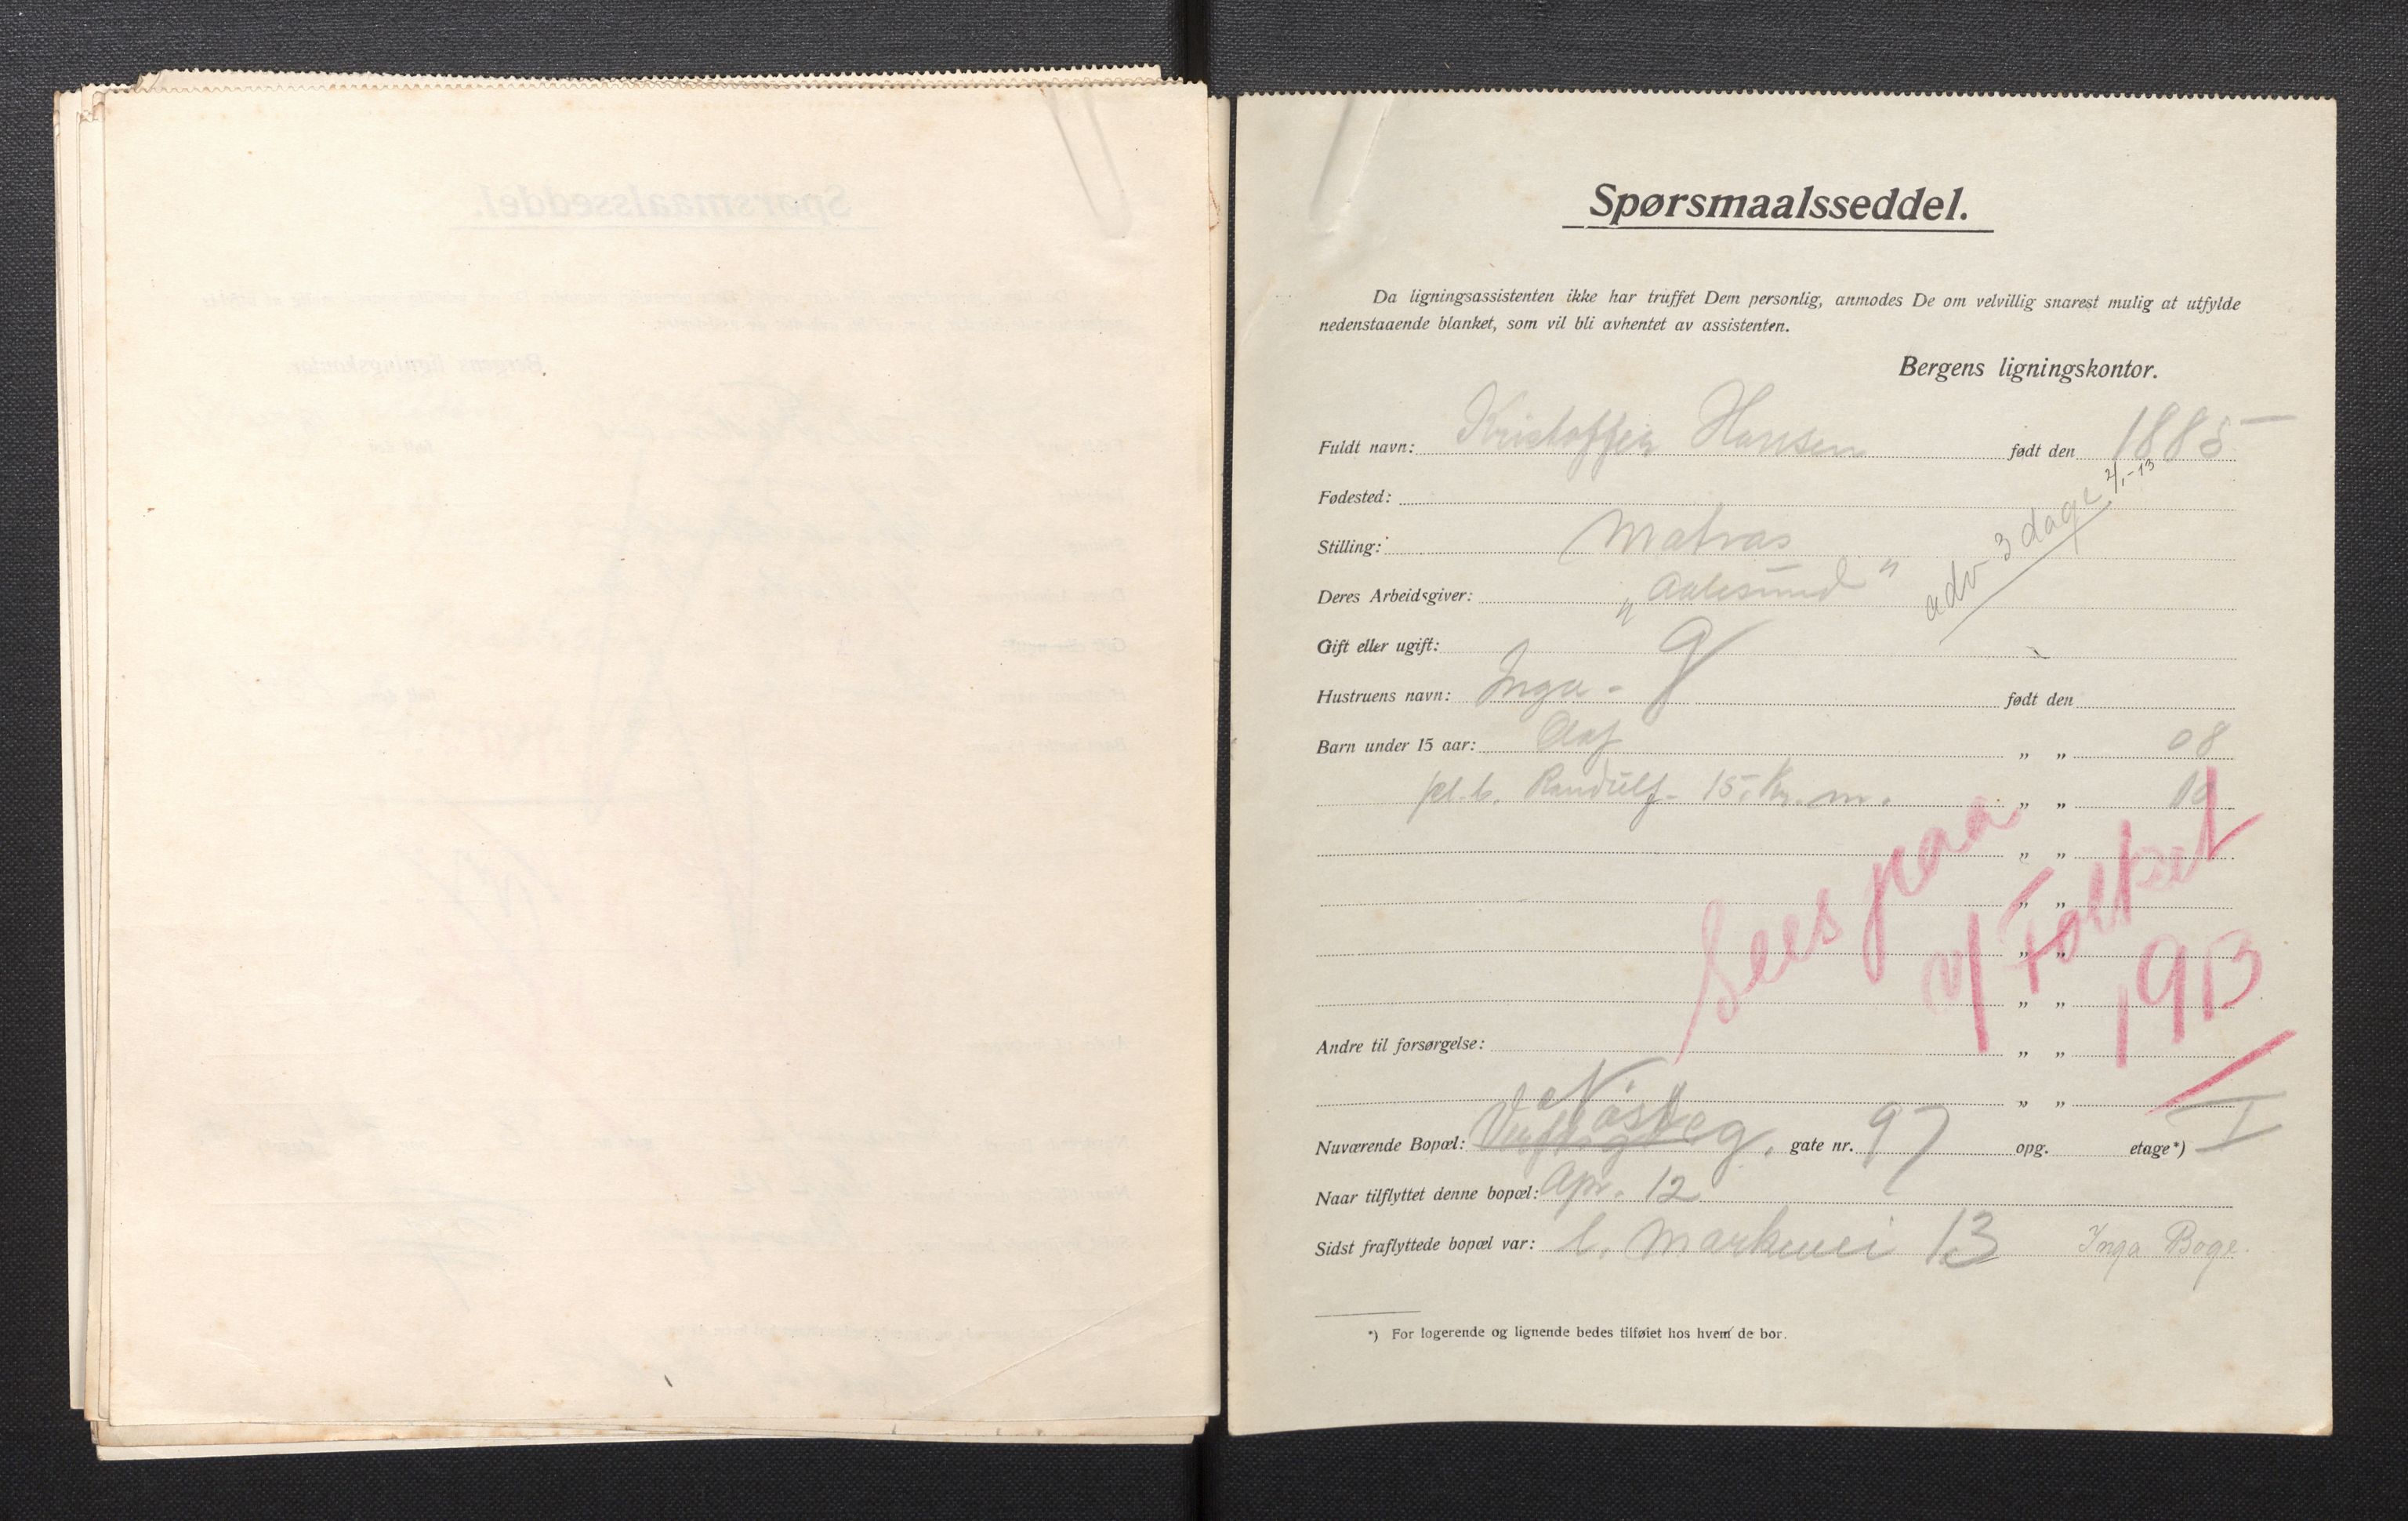 Spørsmaalsseddel.
Da ligningsassistenten ikke har truffet Dem personlig, anmodes De om velvillig snarest mulig at utfylde
nedenstaaende blanket, som vil bli avhentet av assistenten.
Bergens ligningskontor.
Fuldt navn: Kristoffer Hansen født den 1885
Fødested:
adv 3 dage 2/1-13
Stilling: Matros
Deres Arbeidsgiver: "Aalesund"
Gift eller ugift: g
Hustruens navn: Inga - født den
Barn under 15 aar: Olaf " " 08
pl.b. Randulf - 15, Kr. m. " " 10
" "
" "
" "
" "
Sees paa
m/ Folket
1913
Andre til forsørgelse: " "
" "
Nuværende Bopæl: Nøsteg. gate nr. 97 opg. etage*) I
Naar tilflyttet denne bopæl: Apr. 12
Sidst fraflyttede bopæl var: l. Markevei 13 Inga Boge.
*) For logerende og lignende bedes tilføiet hos hvem de bor.